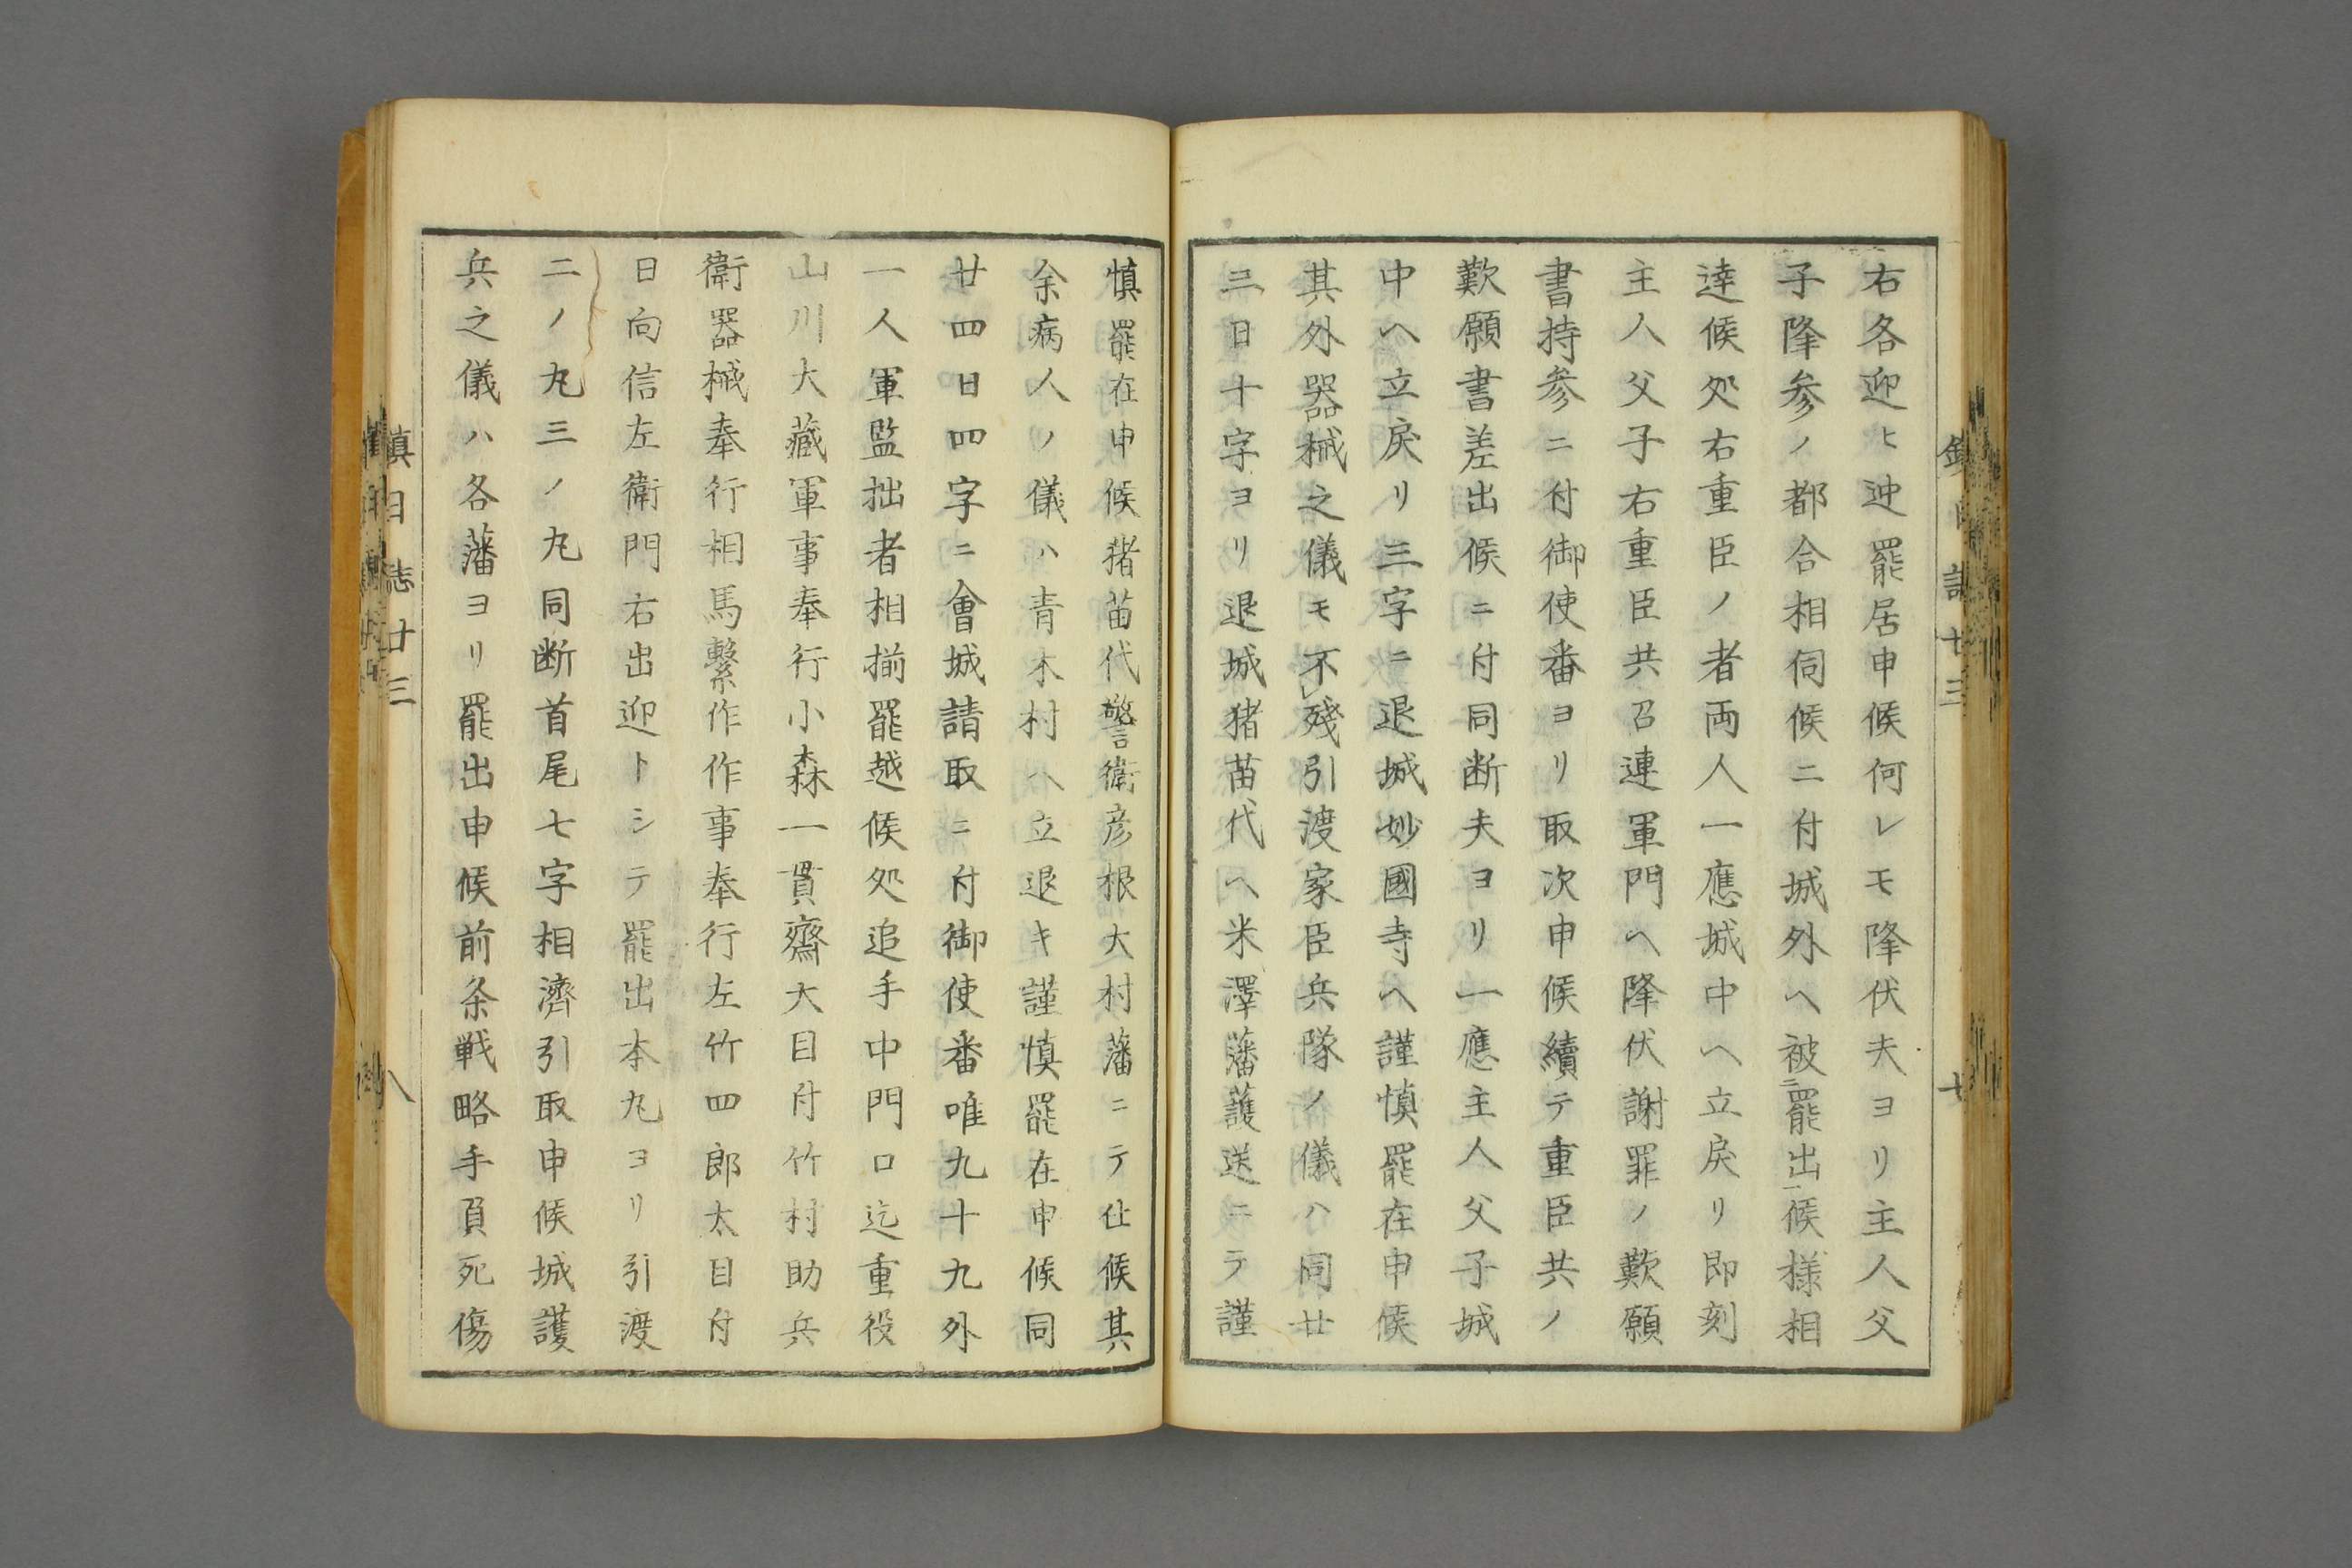 右各迎ヒ迚罷居申候何レモ降伏夫ヨリ主人父
子降参ノ都合相伺候ニ付城外ヘ被ニ罷出一候様相
達候処右重臣ノ者両人一應城中ヘ立戻リ即刻
主人父子右重臣共召連軍門ヘ降伏謝罪ノ歎願
書持参ニ付御使番ヨリ取次申候續テ重臣共ノ
歎願書差出候ニ付同断夫ヨリ一應主人父子城
中ヘ立戻リ三字ニ退城妙國寺ヘ謹慎罷在申候
其外器械之儀モ不レ殘引渡家臣兵隊ノ儀ハ同廿
三日十字ヨリ退城猪苗代ヘ米澤藩護送ニテ謹
慎罷在申候猪苗代警衛彦根大村藩ニテ仕候其
余病人ノ儀ハ青木村ヘ立退キ謹慎罷在申候同
廿四日四字ニ會城請取ニ付御使番唯九十九外
一人軍監拙者相揃罷越候処追手中門口迄重役
山川大藏軍事奉行小森一貫齋大目付竹村助兵
衛器械奉行相馬繋作作事奉行左竹四郎太目付
日向信左衛門右出迎トシテ罷出本丸ヨリ引渡
二ノ丸三ノ丸同断首尾七字相濟引取申候城護
兵之儀ハ各藩ヨリ罷出申候前条戦略手負死傷
鎮日誌廿三
八